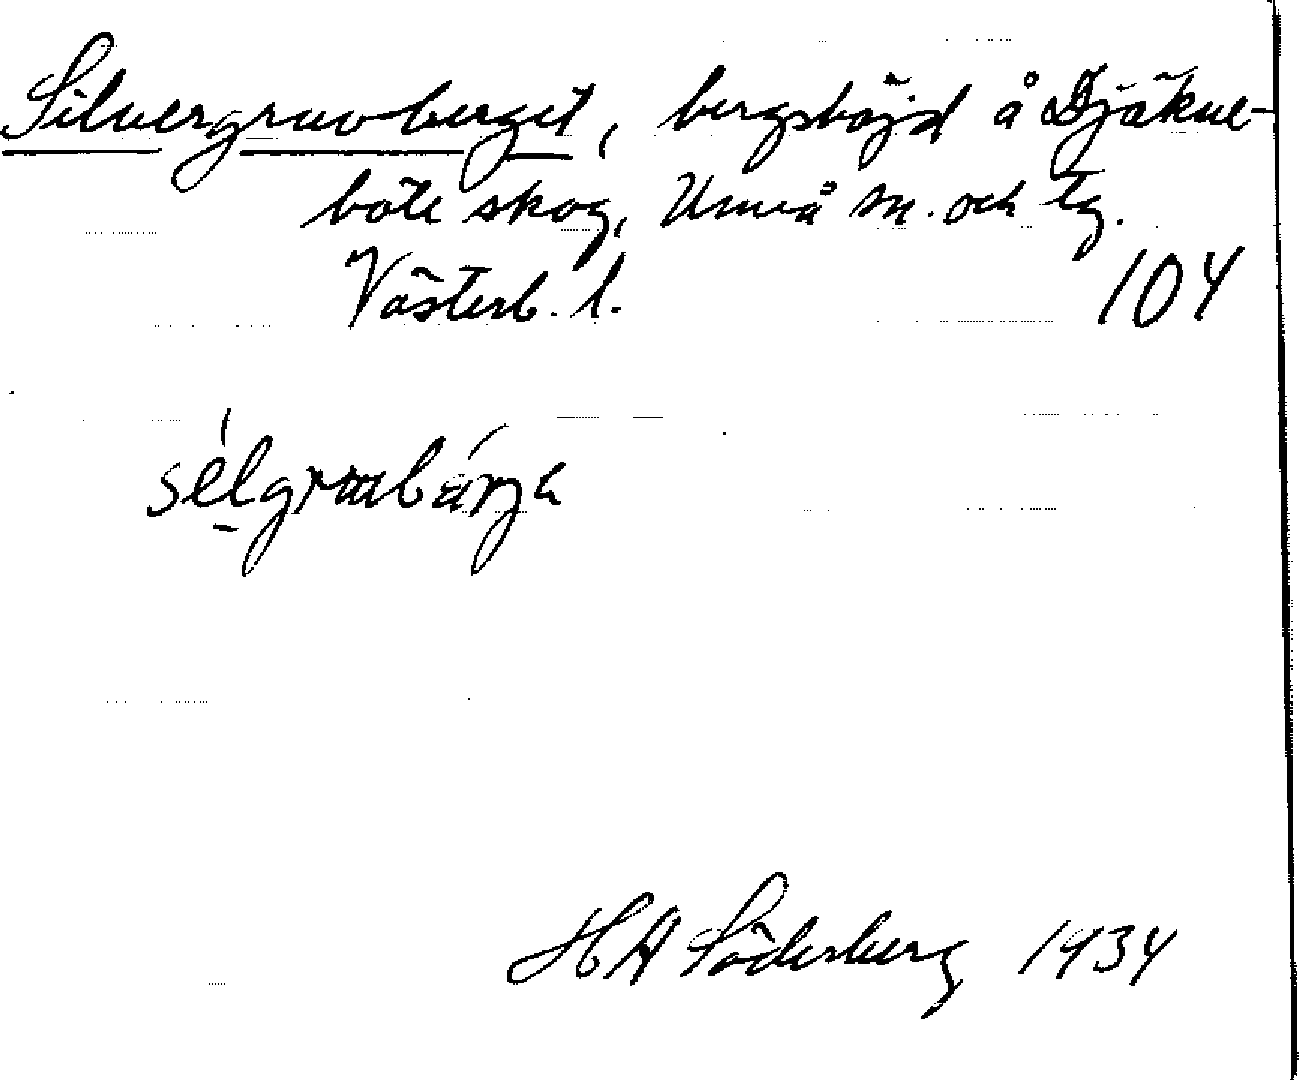 Silvergruvberget, bergshöjd å Djäkne-
böle skog, Umeå sn. och tg.
Västerb. l. 104
HA Söderberg 1934